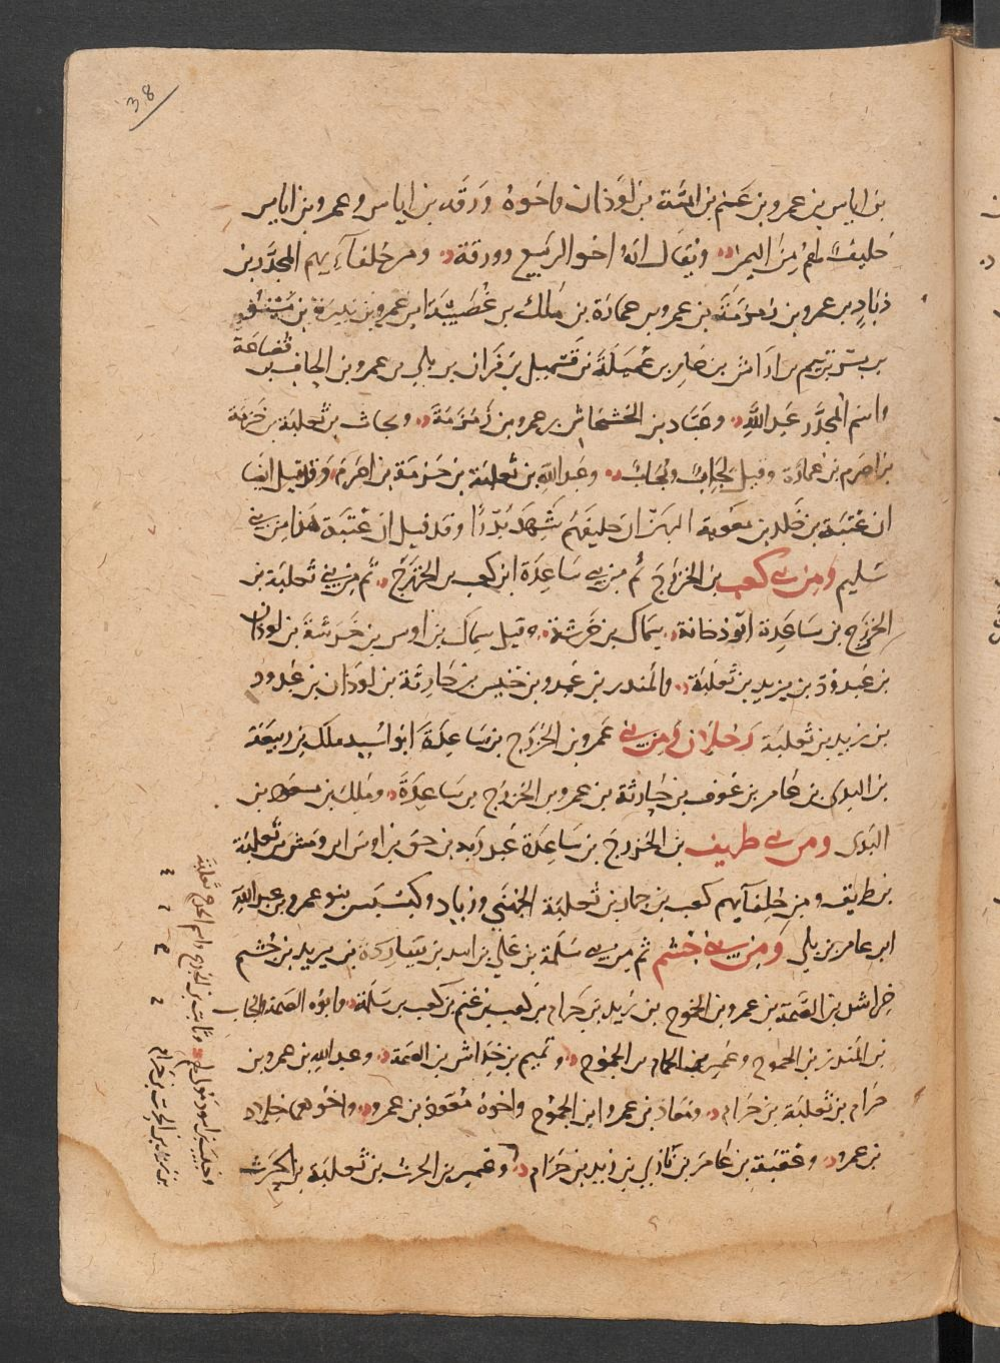 38
بن اياس بن عمرو بن غنم بن امية بن لوذان واخوه ورقه بن اياس وعمرو بن اياس
حليف لهم من اليمن ويقال انه اخو الربيع وورقة ومن حلفآيهم المجذر بن
ذياد بن عمرو بن زمزمة بن عمرو بن عمارة بن ملك بن غصيبة بن عمرو بن بتيرة بن مشنو
بن تيم بن اراش بن عامر بن عميلة بن قسميل بن فران بن بلي بن عمرو بن الحاف بن قضاعة
واسم المجذر عبد الله وعباد بن الخشخاش بن عمرو بن زمزمة وبحاث بن ثعلبة بن خزمة
بن اصرم بن عمارة وقيل نحاب وعبد الله بن ثعلبة بن خزمة بن اصرم وقد قيل ايضا
ان عتبة بن خلد بن معوية البهزاني حليفهم شهد بدرا وقد قيل ان عتبة هذا من بني
سليم ومن بني كعب بن الخزرج ثم من بني ساعدة ابن كعب بن الخزرج ثم من بني ثعلبة بن
الخزرج بن ساعدة ابو دجانة سماك بن خرشة وقيل سماك بن اوس بن خرشة بن لوذان
بن عبد ود بن يزيد بن ثعلبة والمنذر بن عمرو بن خنيس بن حارثة بن لوذان بن عبد ود
بن زيد بن ثعلبة رجلان ومن بني عمرو بن الخزرج بن ساعدة ابو اسيد ملك بن ربيعة
بن البدي بن عامر بن عوف بن حارثة بن عمرو بن الخزرج بن ساعدة وملك بن مسعود بن
البدي ومن بني طريف بن الخزرج بن ساعدة عبد ربه بن حق بن اوس بن وقش بن ثعلبة
بن طريف ومن حلفآيهم كعب بن حمار بن ثعلبة الجهني وزياد وبسبس بنو عمرو بن عبد الله
ابن عامر من بلي ومن بني جشم ثم من بني سلمة بن علي بن اسد بن ساردة بن يزيد بن جشم
خراش بن الصمة بن عمرو بن الجموح بن زيد بن حرام بن كعب بن غنم بن كعب بن سلمة وابوه الصمة والحباب
بن المنذر بن الجموح وعمير بن الحمام بن الجموح وتميم بن خراش بن الصمة وعبد الله بن عمرو بن
حرام بن ثعلبة بن حرام ومعاذ بن عمرو ابن الجموح واخوه معوذ بن عمرو واخوهما خلاد
بن عمرو وعقبة بن عامر بن نابي بن زيد بن حرام وعمير بن الحرث بن ثعلبة بن الحرث
وحبيب بن اسود مولى لهم وثابت بن الجذع واسم الجذع ثعلبة
بن زيد بن الحرث بن حرام